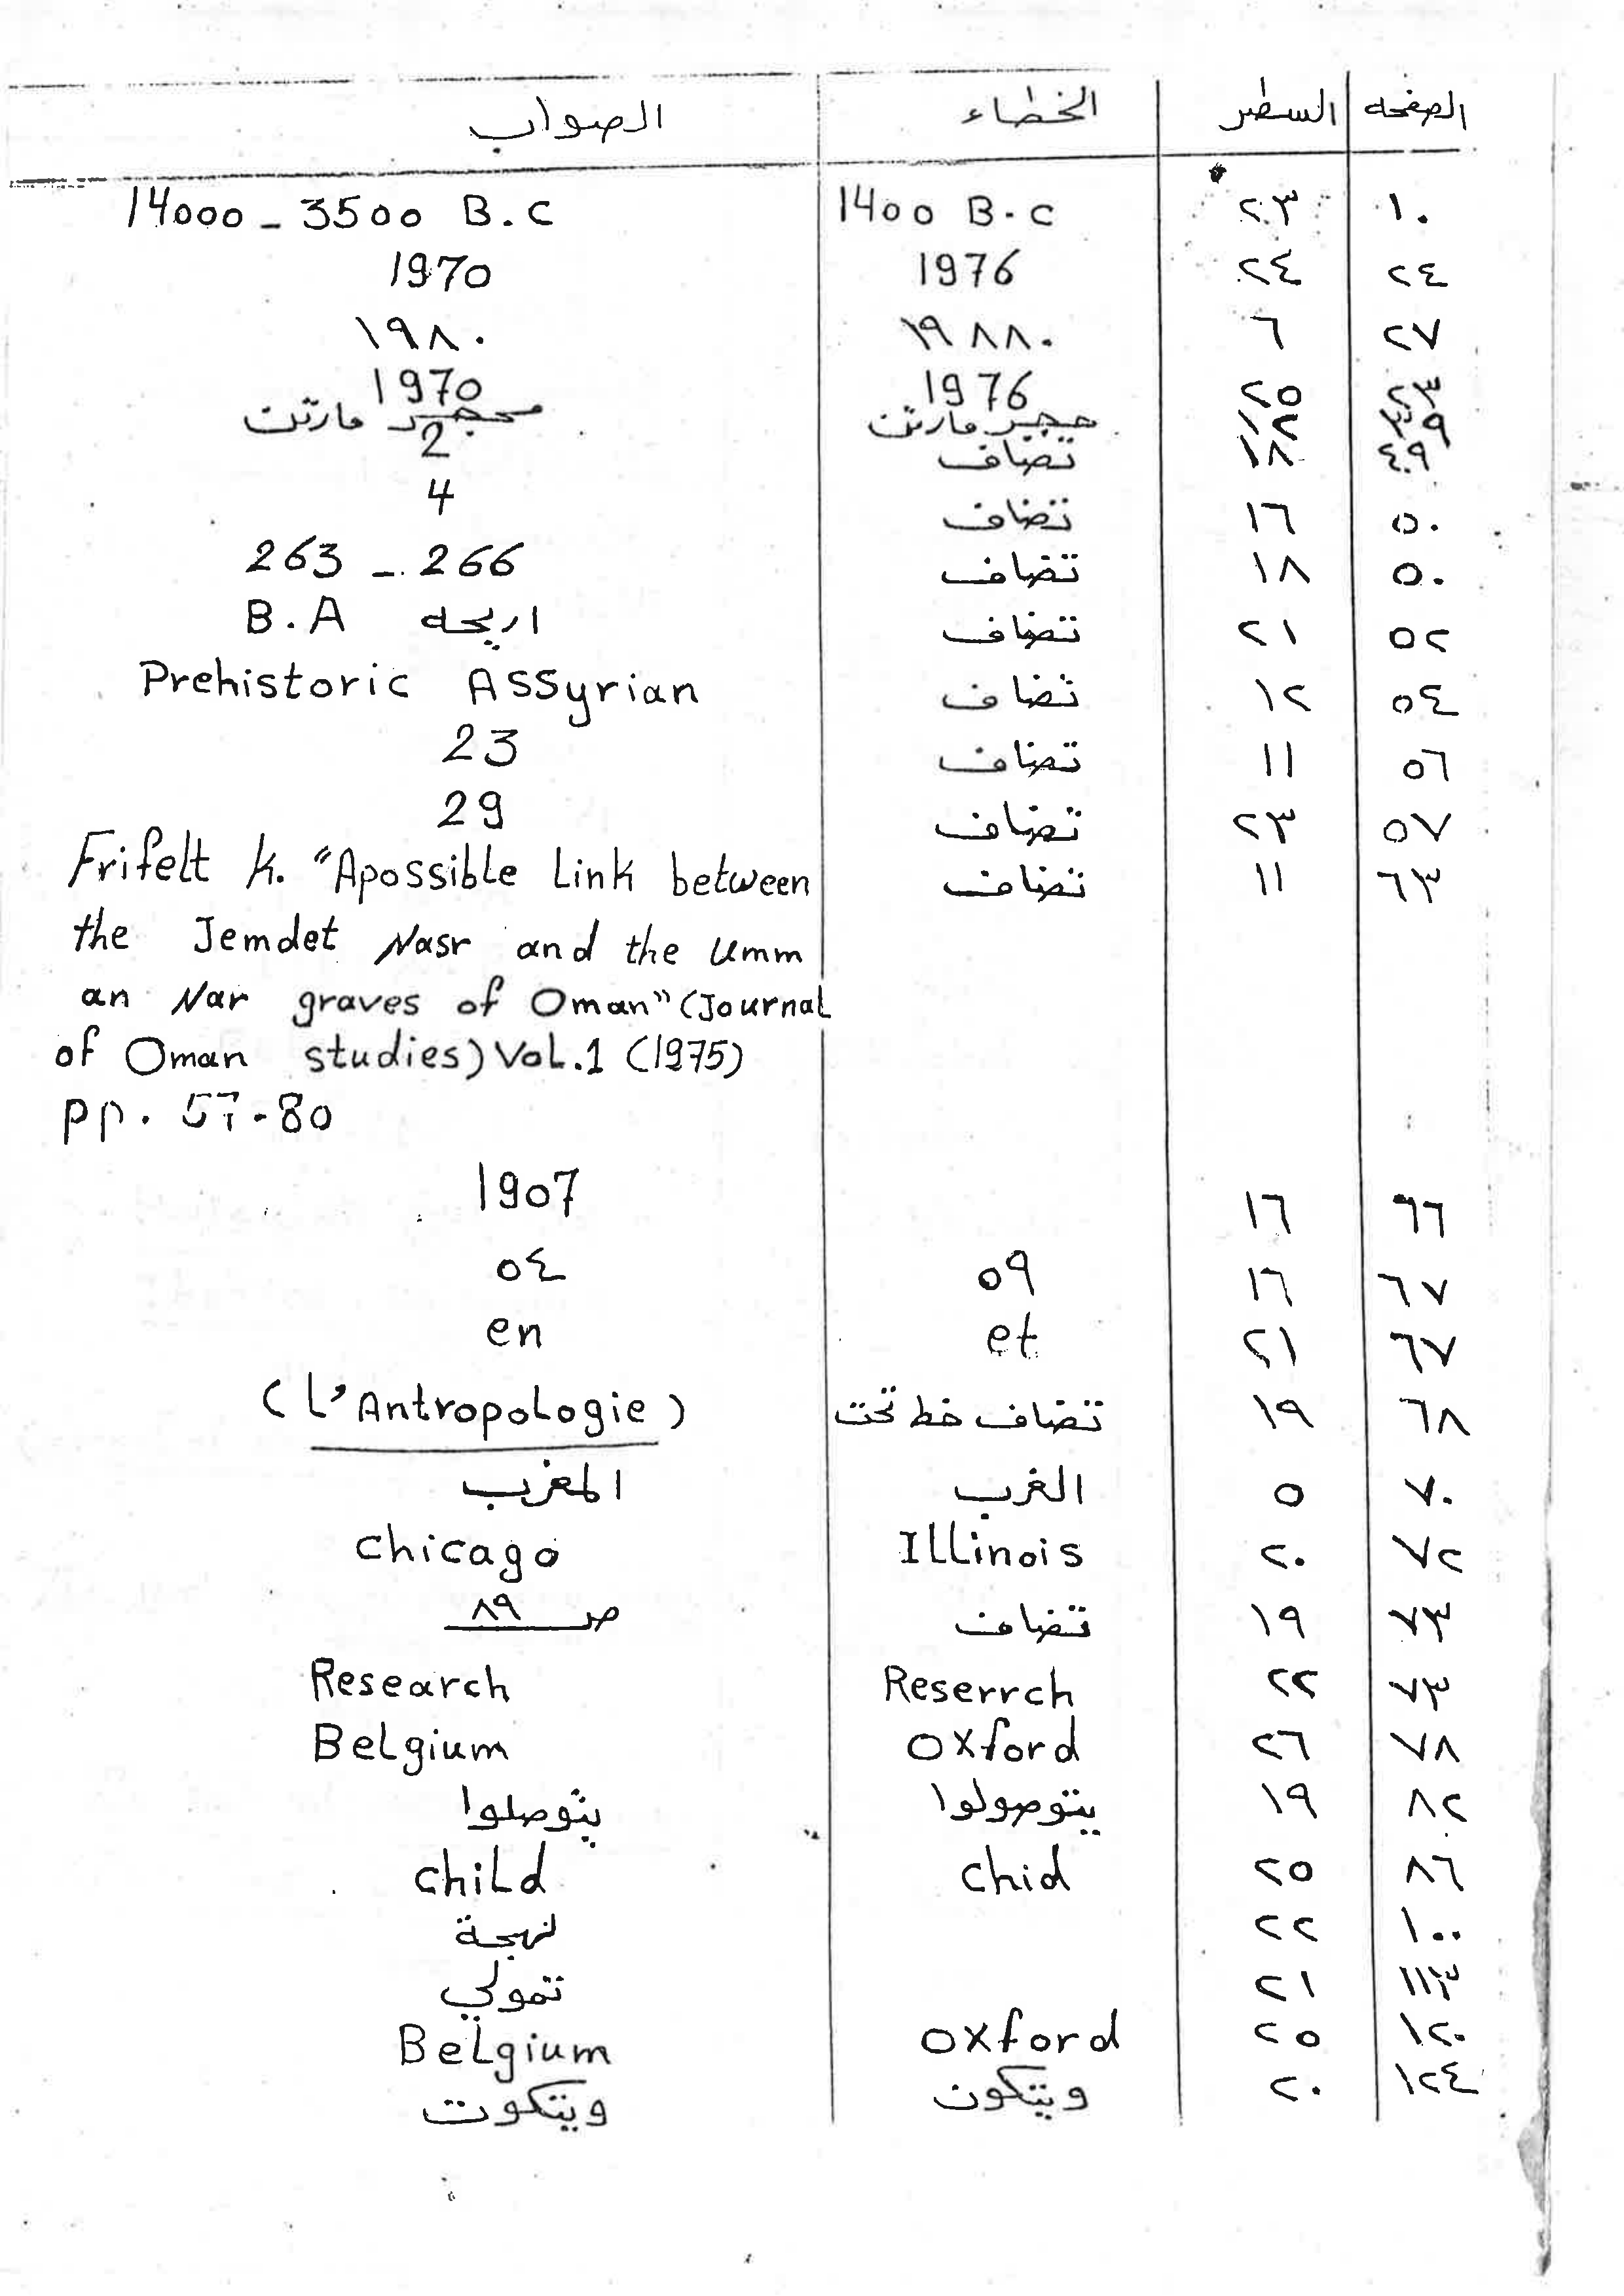 الصفحه السطر الخطاء الصواب
١٠ ٢٣ 1400 B.c 14000 - 3500 B.c
٢٤ ٢٤ 1976 1970
٢٧ ٦ ١٩٨٨٠ ١٩٨٠
٢٣ ٢٥ 1976 1970
٣٩ حجير مارتن محجر مارتن
٤٩ ١٨ تضاف 2
٥٠ ١٦ تضاف 4
٥٠ ١٨ تضاف 263 - 266
٥٢ ٢١ تضاف اريحه B.A
٥٤ ١٢ تضاف Prehistoric Assyrian
٥٦ ١١ تضاف 23
٥٧ ٢٣ تضاف 29
٦٣ ١١ تضاف Frifelt k. "Apossible Link between
the Jemdet Nasr and the Umm
an Nar graves of Oman" (Journal
of Oman studies) Vol.1 (1975)
pp. 57-80
٦٦ ١٦ 1907
٦٧ ١٦ ٥٩ ٥٤
٦٧ ٢١ et en
٦٨ ١٩ تضاف خط تحت (L'Antropologie)
٧٠ ٥ الغرب المغرب
٧٢ ٢٠ Illinois chicago
٧٣ ١٩ تضاف ص ٨٩
٧٣ ٢٢ Reserrch Research
٧٨ ٢٦ Oxford Belgium
٨٢ ١٩ يتوصولوا يتوصلوا
٨٦ ٢٥ chid child
١٠٠ ٢٢ لهجة
١١٣ ٢١ تمولي
١٢٠ ٢٥ oxford Belgium
١٢٤ ٢٠ ويتكون ويتكوت